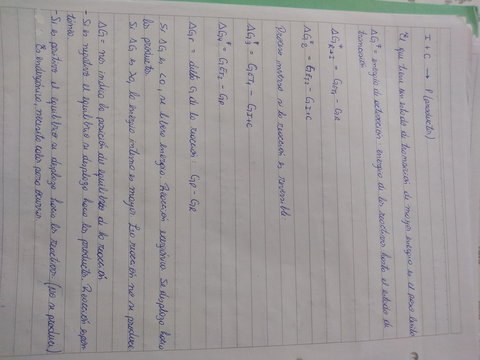 I + C → P (productos)
El que tiene un estado de transición de mayor energía es el paso limitante
ΔG‡ = energía de activación: energía de los reactivos hasta el estado de
transición.
ΔG‡ = G - GR
ΔG‡ = G - GI+C
Proceso inverso si la reacción es reversible
ΔG‡ = G - GI+C
ΔG‡ = G - GP
ΔGr = delta G de la reacción: GP - GR
Si ΔG es <0, se libera energía. Reacción exergónica. Se desplaza hacia
los productos.
Si ΔG es >0, la energía interna es mayor. La reacción no se produce
ΔG: nos indica la posición del equilibrio de la reacción
- Si es negativo el equilibrio se desplaza hacia los productos. Reacción
- Si es positivo el equilibrio se desplaza hacia los reactivos (no se produce)
Es endergónica, necesita calor para ocurrir.